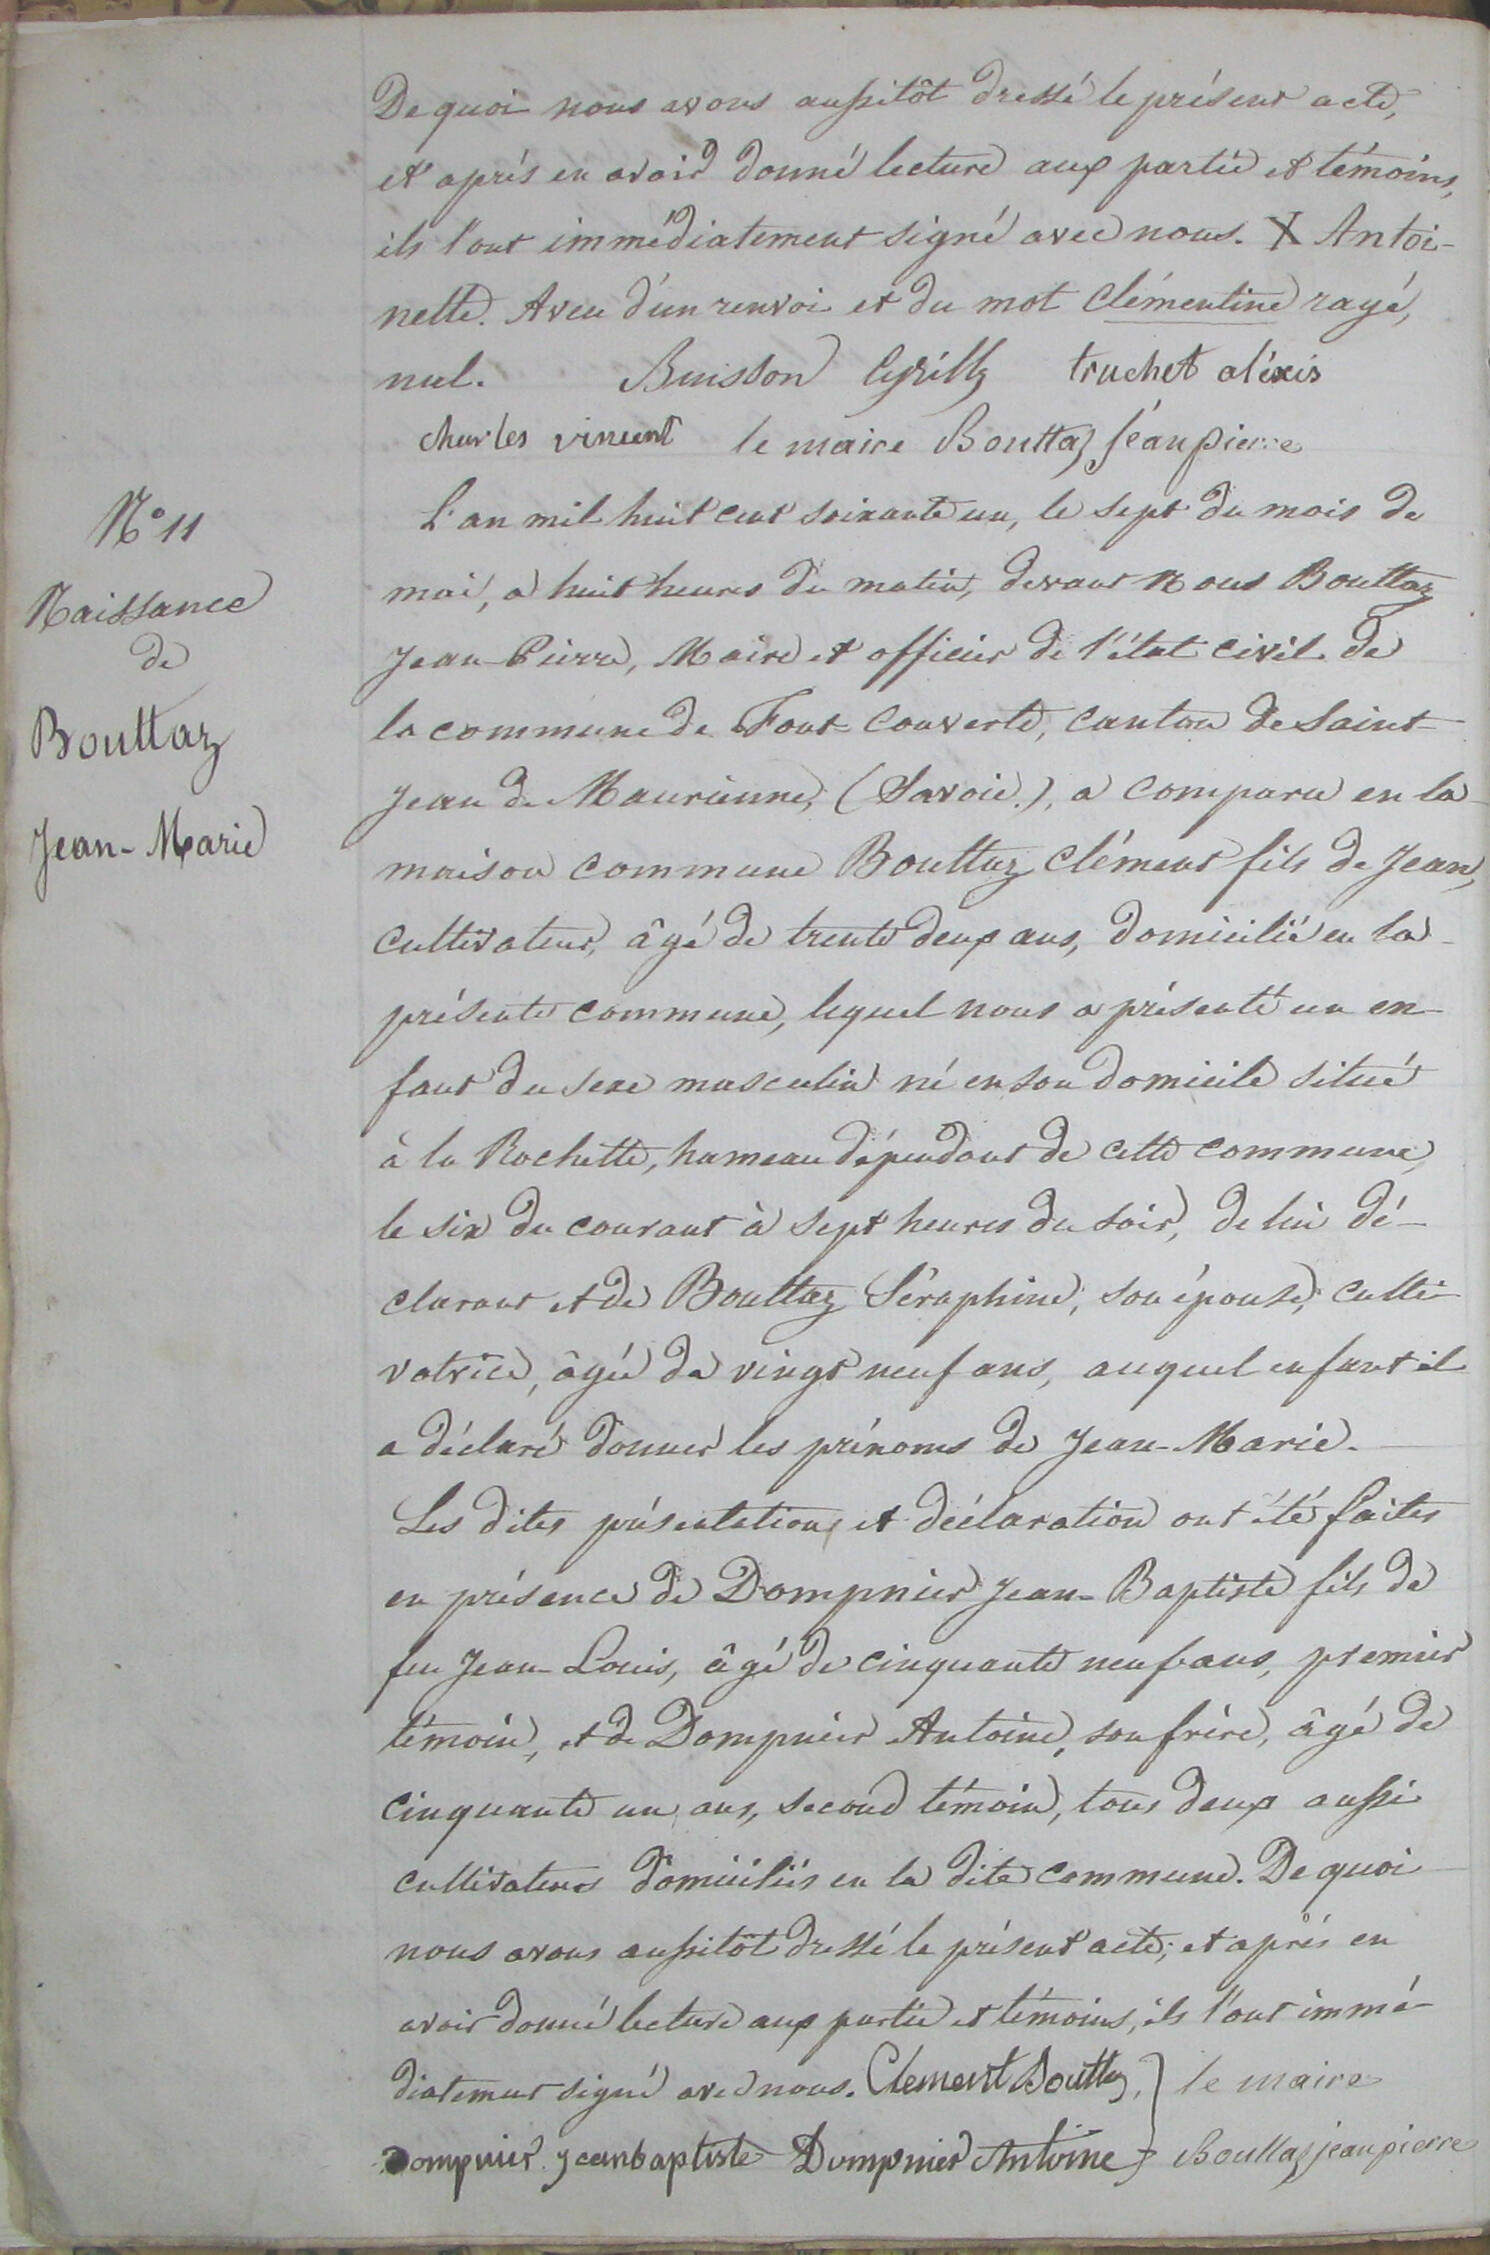 De quoi nous avons aussitôt dressé le présent acte,
et après en avoir donné lecture aux partie et témoins,
ils l'ont immédiatement signé avec nous. X Antoi-
nette. Aveu d'un renvoi et du mot Clémentine rayé,
nul. Buisson Cyrille truchet aléxis
charles vincent le maire Bouttaz Jéanpierre
N° 11
Naissance
de
Bouttaz
Jean-Marie
L'an mil huit cent soixante un, le sept du mois de
mai, à huit heures du matin, devant Nous Bouttaz
Jean-Pierre, Maire et officier de l'état civil de
la commune de Font-Couverte, canton de Saint-
Jean de Maurienne, (Savoie.), a comparu en la
maison commune Bouttaz Clément fils de Jean,
cultivateur, âgé de trente deux ans, domicilié en la
présente commune, lequel nous a présenté un en-
fant du sexe masculin né en son domicile situé
à la Rochette, hameau dépendant de cette commune,
le six du courant à sept heures du soir, de lui dé-
clarant et de Bouttaz Séraphine, son épouse, culti-
vatrice, âgée de vingt neuf ans, auquel enfant il
a déclaré donner les prénoms de Jean-Marie.
Les dites présentation et déclaration ont été faites
en présence de Dompnier Jean-Baptiste fils de
feu Jean-Louis, âgé de cinquante neuf ans, premier
témoin, et de Dompnier Antoine, son frère, âgé de
cinquante un ans, second témoin, tous deux aussi
cultivateurs domiciliés en la dite commune. De quoi
nous avons aussitôt dressé le présent acte; et après en
avoir donné lecture aux partie et témoins, ils l'ont immé-
diatement signé avec nous. Clement Bouttaz, } le maire
Dompnier jeanbaptiste Dompnier Antoine } Bouttaz jeanpierre